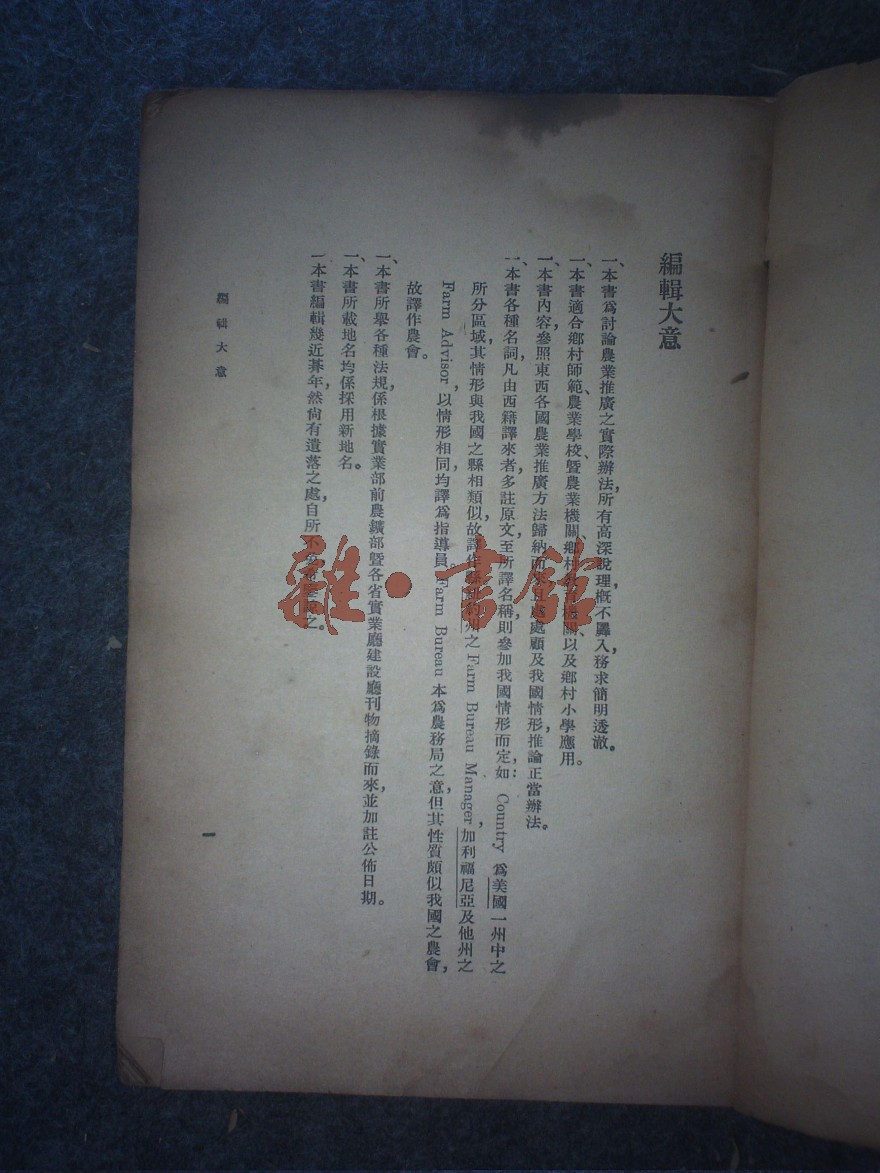 編輯大意
一、本書爲討論農業推廣之實際辦法，所有高深說理，概不羼入，務求簡明透澈。
一、本書適合鄉村師範、農業學校、暨農業機關、鄉村機關、以及鄉村小學應用。
一、本書內容，參照東西各國農業推廣方法，歸納而處處顧及我國情形，推論正當辦法。
一、本書各種名詞，凡由西籍譯來者，多註原文，至所譯名稱，則參加我國情形而定，如：Country 爲美國一州中之
所分區域，其情形與我國之縣相類似，故譯作州之 Farm Bureau Manager，加利福尼亞及他州之
Farm Advisor，以情形相同，均譯爲指導員。Farm Bureau 本爲農務局之意，但其性質頗似我國之農會，
故譯作農會。
一、本書所舉各種法規，係根據實業部前農鑛部暨各省實業廳建設廳刊物摘錄而來，並加註公佈日期。
一、本書所載地名，均係採用新地名。
一、本書編輯幾近朞年，然尙有遺落之處，自所不之。
編輯大意
一
雜·書館